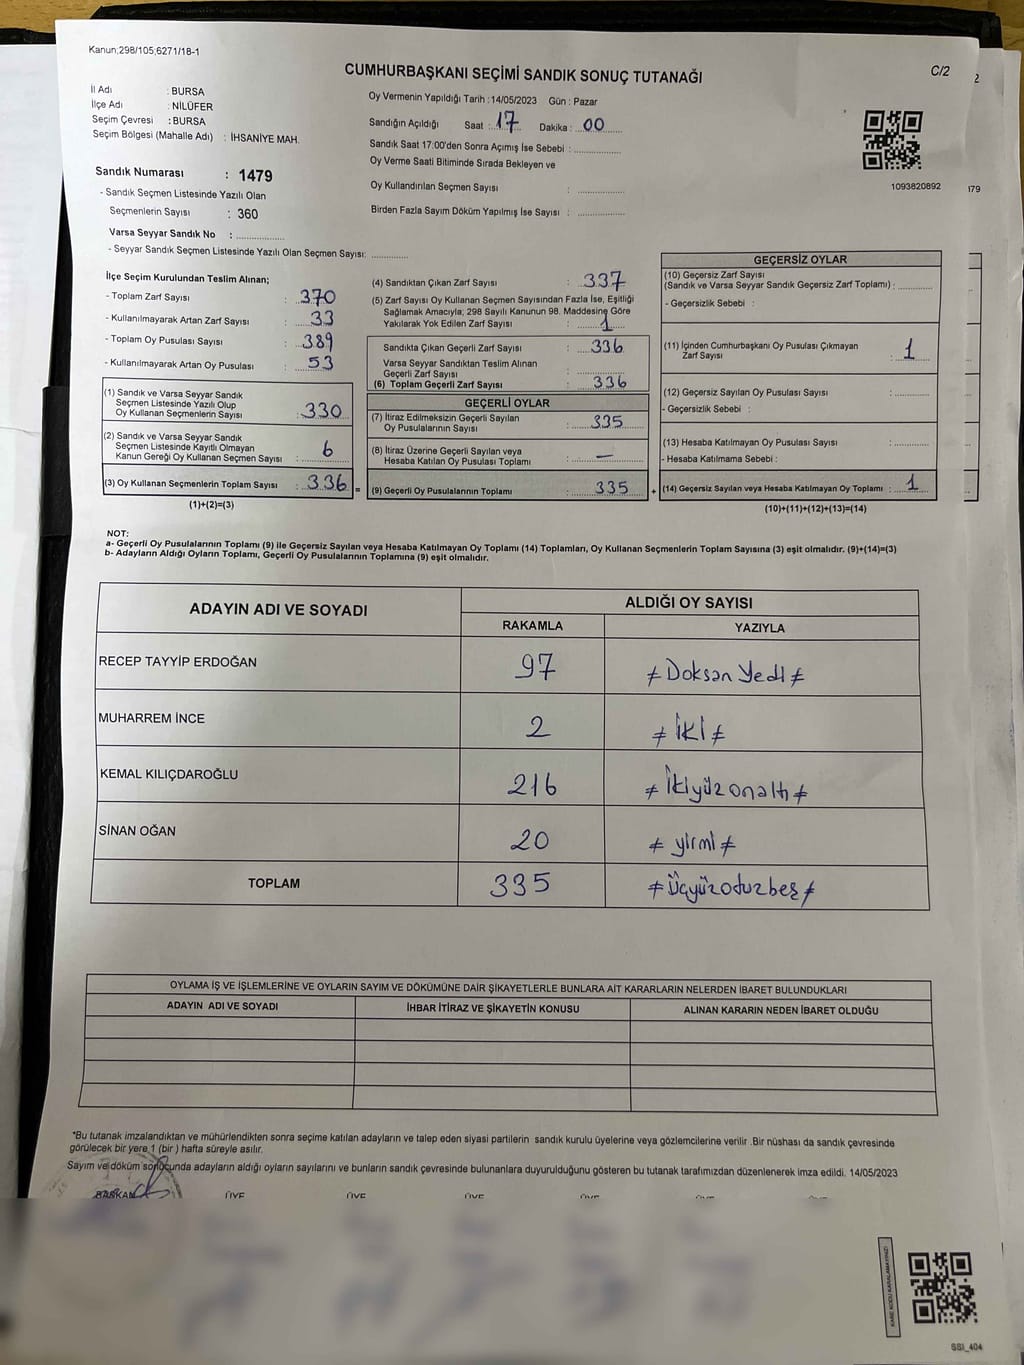 Kanun;298/105;6271/18-1
CUMHURBAŞKANI SEÇİMİ SANDIK SONUÇ TUTANAĞI
C/2
2
İl Adı : BURSA
İlçe Adı : NİLÜFER
Seçim Çevresi : BURSA
Seçim Bölgesi (Mahalle Adı) : İHSANİYE MAH.
Oy Vermenin Yapıldığı Tarih :14/05/2023 Gün : Pazar
Sandığın Açıldığı Saat : 17 Dakika : 00
Sandık Saat 17:00'den Sonra Açımış İse Sebebi :
Oy Verme Saati Bitiminde Sırada Bekleyen ve
Oy Kullandırılan Seçmen Sayısı :
Birden Fazla Sayım Döküm Yapılmış İse Sayısı :
1093820892
179
Sandık Numarası : 1479
- Sandık Seçmen Listesinde Yazılı Olan
Seçmenlerin Sayısı : 360
Varsa Seyyar Sandık No :
- Seyyar Sandık Seçmen Listesinde Yazılı Olan Seçmen Sayısı:
İlçe Seçim Kurulundan Teslim Alınan;
- Toplam Zarf Sayısı : 370
- Kullanılmayarak Artan Zarf Sayısı : 33
- Toplam Oy Pusulası Sayısı : 389
- Kullanılmayarak Artan Oy Pusulası : 53
(1) Sandık ve Varsa Seyyar Sandık
Seçmen Listesinde Yazılı Olup
Oy Kullanan Seçmenlerin Sayısı : 330
(2) Sandık ve Varsa Seyyar Sandık
Seçmen Listesinde Kayıtlı Olmayan
Kanun Gereği Oy Kullanan Seçmen Sayısı : 6
(3) Oy Kullanan Seçmenlerin Toplam Sayısı : 336 =
(1)+(2)=(3)
(4) Sandıktan Çıkan Zarf Sayısı : 337
(5) Zarf Sayısı Oy Kullanan Seçmen Sayısından Fazla İse, Eşitliği
Sağlamak Amacıyla; 298 Sayılı Kanunun 98. Maddesine Göre
Yakılarak Yok Edilen Zarf Sayısı : 1
Sandıkta Çıkan Geçerli Zarf Sayısı : 336
Varsa Seyyar Sandıktan Teslim Alınan
Geçerli Zarf Sayısı :
(6) Toplam Geçerli Zarf Sayısı : 336
GEÇERLİ OYLAR
(7) İtiraz Edilmeksizin Geçerli Sayılan
Oy Pusulalarının Sayısı : 335
(8) İtiraz Üzerine Geçerli Sayılan veya
Hesaba Katılan Oy Pusulası Toplamı : —
(9) Geçerli Oy Pusulalarının Toplamı : 335 +
GEÇERSİZ OYLAR
(10) Geçersiz Zarf Sayısı
(Sandık ve Varsa Seyyar Sandık Geçersiz Zarf Toplamı) :
- Geçersizlik Sebebi :
(11) İçinden Cumhurbaşkanı Oy Pusulası Çıkmayan
Zarf Sayısı : 1
(12) Geçersiz Sayılan Oy Pusulası Sayısı :
- Geçersizlik Sebebi :
(13) Hesaba Katılmayan Oy Pusulası Sayısı :
- Hesaba Katılmama Sebebi :
(14) Geçersiz Sayılan veya Hesaba Katılmayan Oy Toplamı : 1
(10)+(11)+(12)+(13)=(14)
NOT:
a- Geçerli Oy Pusulalarının Toplamı (9) ile Geçersiz Sayılan veya Hesaba Katılmayan Oy Toplamı (14) Toplamları, Oy Kullanan Seçmenlerin Toplam Sayısına (3) eşit olmalıdır. (9)+(14)=(3)
b- Adayların Aldığı Oyların Toplamı, Geçerli Oy Pusulalarının Toplamına (9) eşit olmalıdır.
ADAYIN ADI VE SOYADI ALDIĞI OY SAYISI
RAKAMLA YAZIYLA
RECEP TAYYİP ERDOĞAN 97 ≠ Doksan Yedi ≠
MUHARREM İNCE 2 ≠ İKİ ≠
KEMAL KILIÇDAROĞLU 216 ≠ İkiyüzonaltı ≠
SİNAN OĞAN 20 ≠ yirmi ≠
TOPLAM 335 ≠ Üçyüzotuzbeş ≠
OYLAMA İŞ VE İŞLEMLERİNE VE OYLARIN SAYIM VE DÖKÜMÜNE DAİR ŞİKAYETLERLE BUNLARA AİT KARARLARIN NELERDEN İBARET BULUNDUKLARI
ADAYIN ADI VE SOYADI İHBAR İTİRAZ VE ŞİKAYETİN KONUSU ALINAN KARARIN NEDEN İBARET OLDUĞU
*Bu tutanak imzalandıktan ve mühürlendikten sonra seçime katılan adayların ve talep eden siyasi partilerin sandık kurulu üyelerine veya gözlemcilerine verilir .Bir nüshası da sandık çevresinde
görülecek bir yere 1 (bir ) hafta süreyle asılır.
Sayım ve döküm sonucunda adayların aldığı oyların sayılarını ve bunların sandık çevresinde bulunanlara duyurulduğunu gösteren bu tutanak tarafımızdan düzenlenerek imza edildi. 14/05/2023
BAŞKAN ÜYE ÜYE ÜYE ÜYE ÜYE
KARE KODU KARALAMAYINIZ!
SSI_404